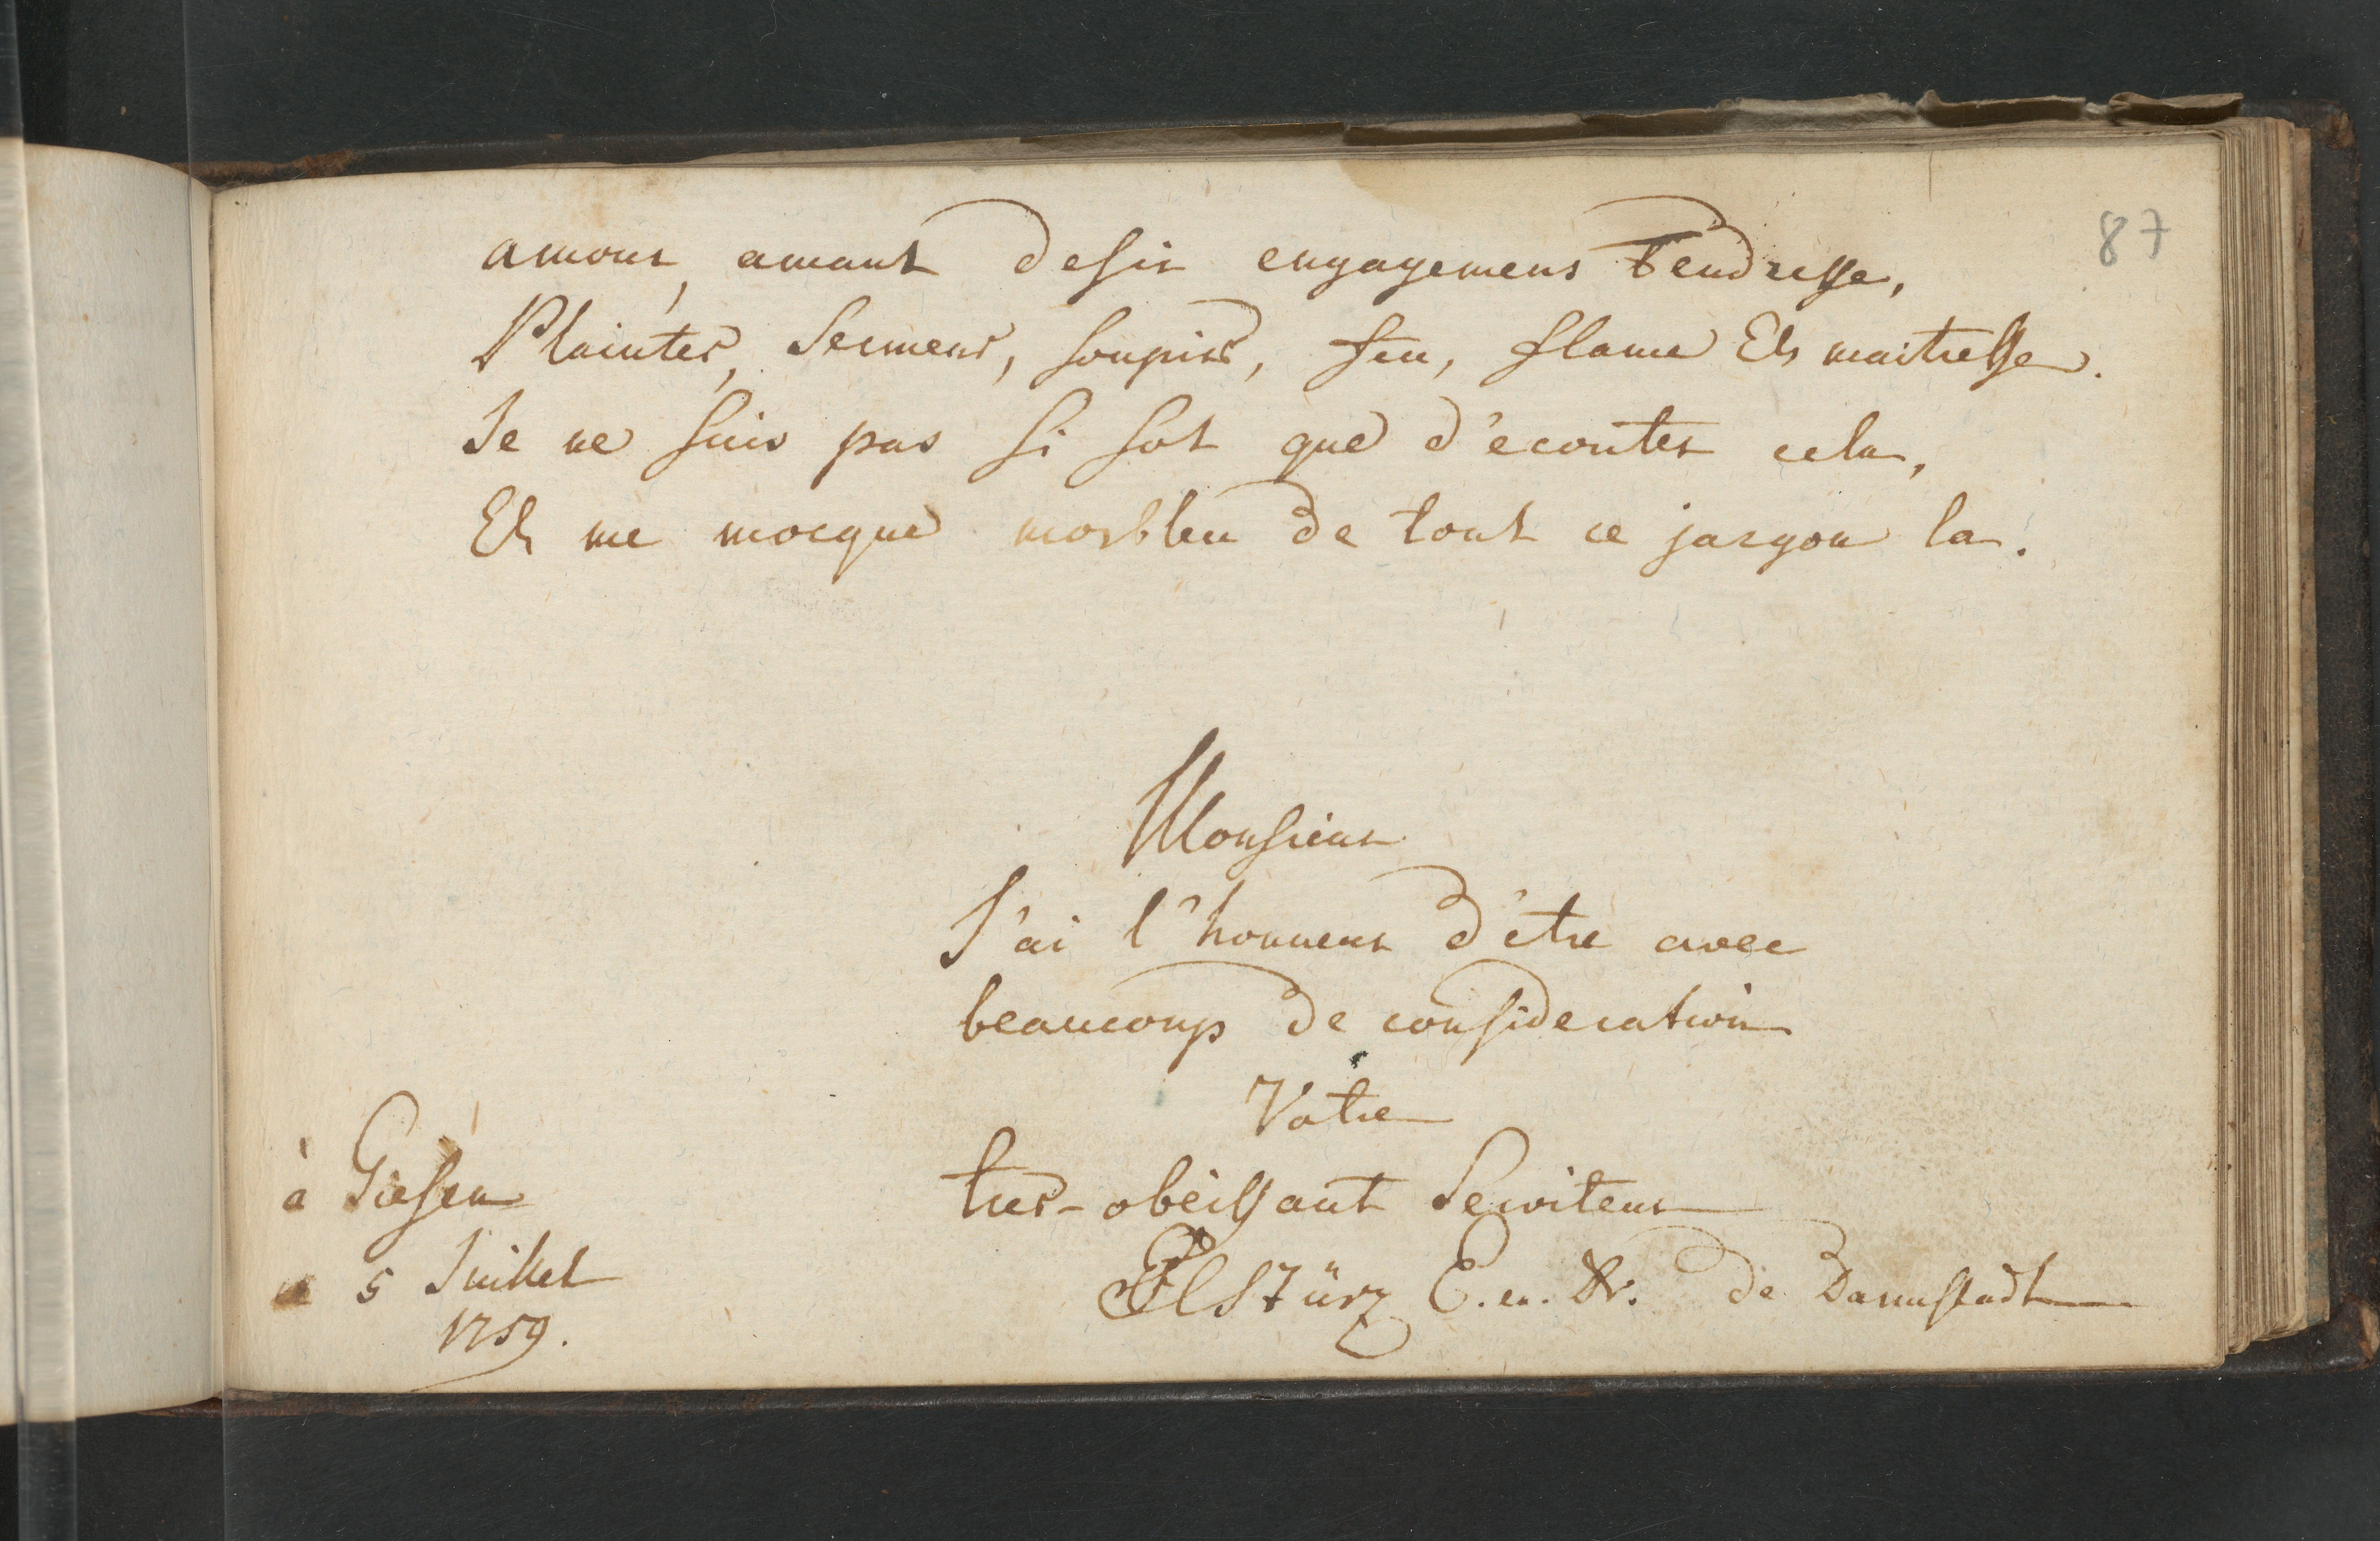 87
amour, amant desir engagemens tendresse,
Plaintes, Sermens, soupirs, feu, flame Et maitresse.
Je ne suis pas si sot que d'ecouter cela,
Et me mocque morbleu de tout ce jargon la.
Monsieur
J'ai l'honneur d'être avec
beaucoup de consideration
Votre
tres-obeissant Serviteur
à Giessen
5 Juillet
1759.
Stürz E. en Dr. de Darmstadt